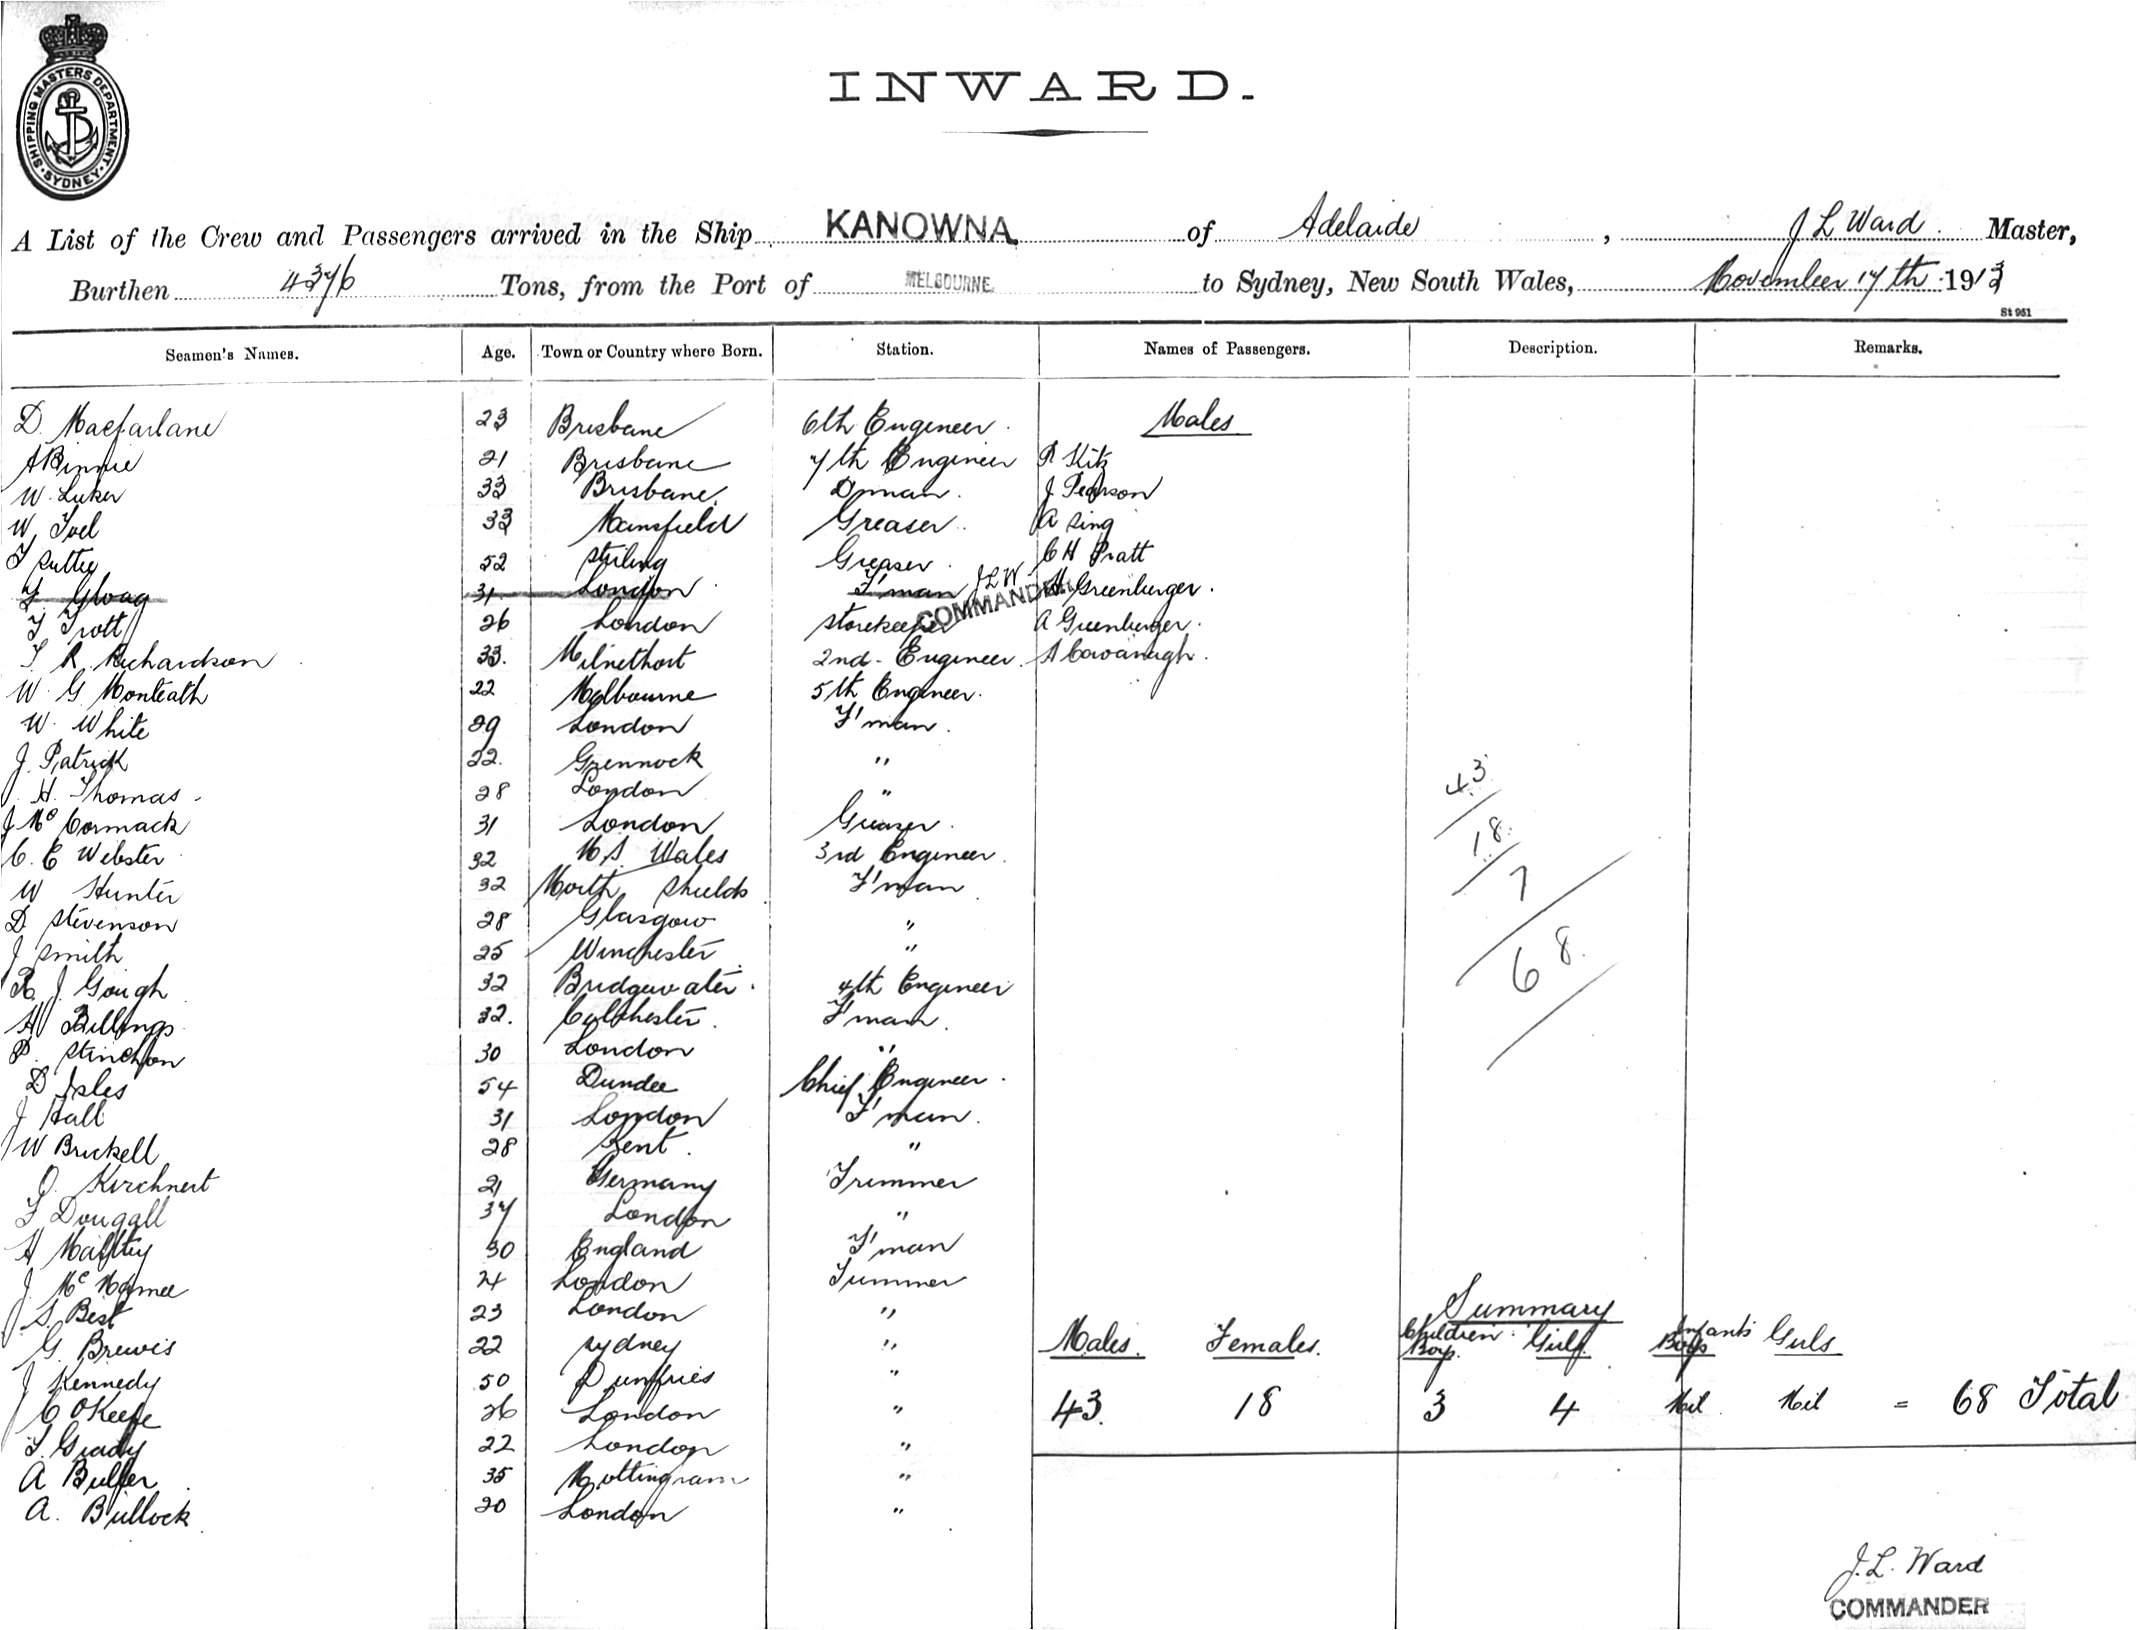 SHIPPING MASTERS DEPARTMENT · SYDNEY ·
INWARD.
A List of the Crew and Passengers arrived in the Ship KANOWNA of Adelaide, J L Ward. Master,
Burthen 4376 Tons, from the Port of MELBOURNE to Sydney, New South Wales, November 17th 1913
St 951
Seamen's Names. Age. Town or Country where Born. Station. Names of Passengers. Description. Remarks.
D. Macfarlane 23 Brisbane 6th Engineer. Males
A Binnie 21 Brisbane 7th Engineer R Kitz
W. Luker 33 Brisbane. Dman. J Pearson
W. Joel 33 Mansfield Greaser. A Sing
T Suttie 52 Stirling Greaser. C H Pratt
F Gloag 31 London F'man JLW COMMANDER H Greenberger.
T Trott 26 London Storekeeper A Greenberger.
T. R. Richardson 33. Milnethort 2nd Engineer. A Cavanagh.
W. G. Monteath 22 Melbourne 5th Engineer.
W. White 29 London F'man.
J. Patrick 22. Grennock "
J. H. Thomas. 28 London "
J Mc Cormack 31 London Greaser.
C. E Webster 32 N.S. Wales 3rd Engineer.
W Hunter 32 North Shields F'man
D. Stevenson 28 Glasgow "
J Smith 25 Winchester "
R. J. Gough 32 Bridgewater. 4th Engineer
H Billings 32. Colchester. F'man.
P. Stinchon 30 London "
D Isles 54 Dundee Chief Engineer.
J Hall 31 London F'man.
W Brickell 28 Kent. "
O. Kirchnert 21 Germany Trimmer
F Dougall 37 London "
H Maltby 30 England F'man
J. Mc Namee 24 London Trimmer
S. Best 23 London "
G. Brewis 22 Sydney "
J Kennedy 50 Dumfries "
C OKeefe 26 London "
T. Grady 22 London "
A Buller 35 Nottingram "
A. Bullock 20 London "
43
18.
7
68.
Summary
Males. Females. Children Boys. Girls. Infants Boys Girls
43. 18 3 4 Nil. Nil = 68 Total
J.L. Ward
COMMANDER